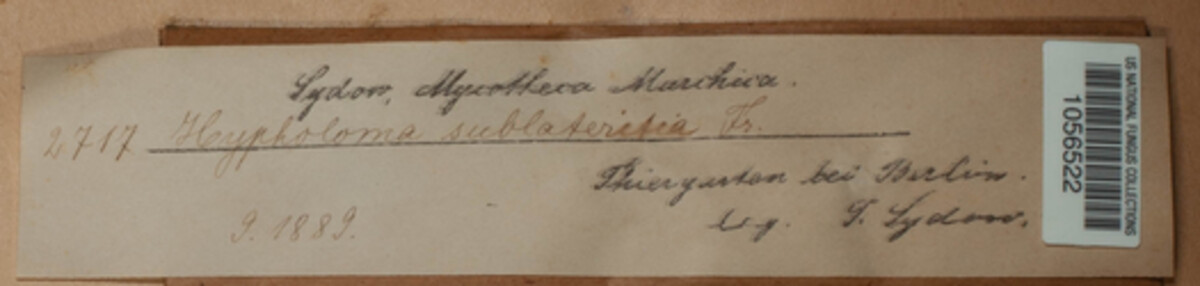 Sydow, Mycotheca Marchica.
2717 Hypholoma sublateritia Fr.
Thiergarten bei Berlin.
9. 1889.
leg. P. Sydow.
US NATIONAL FUNGUS COLLECTIONS
1056522